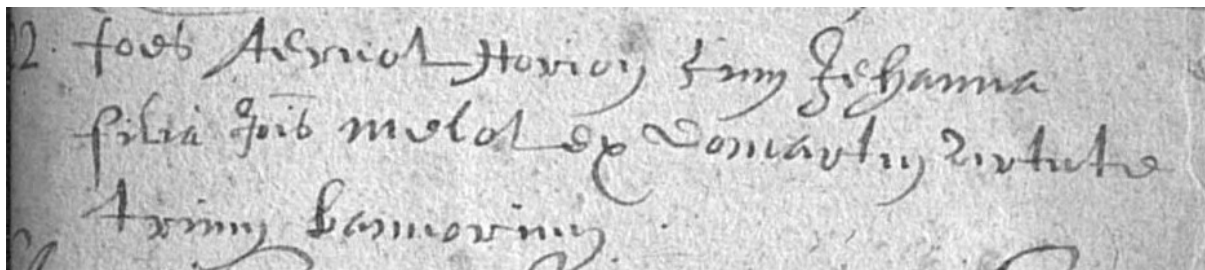 12. Joes Aernot Horion cum Jehanna
filia Jois melot ex Domartin virtute
trium bannorum